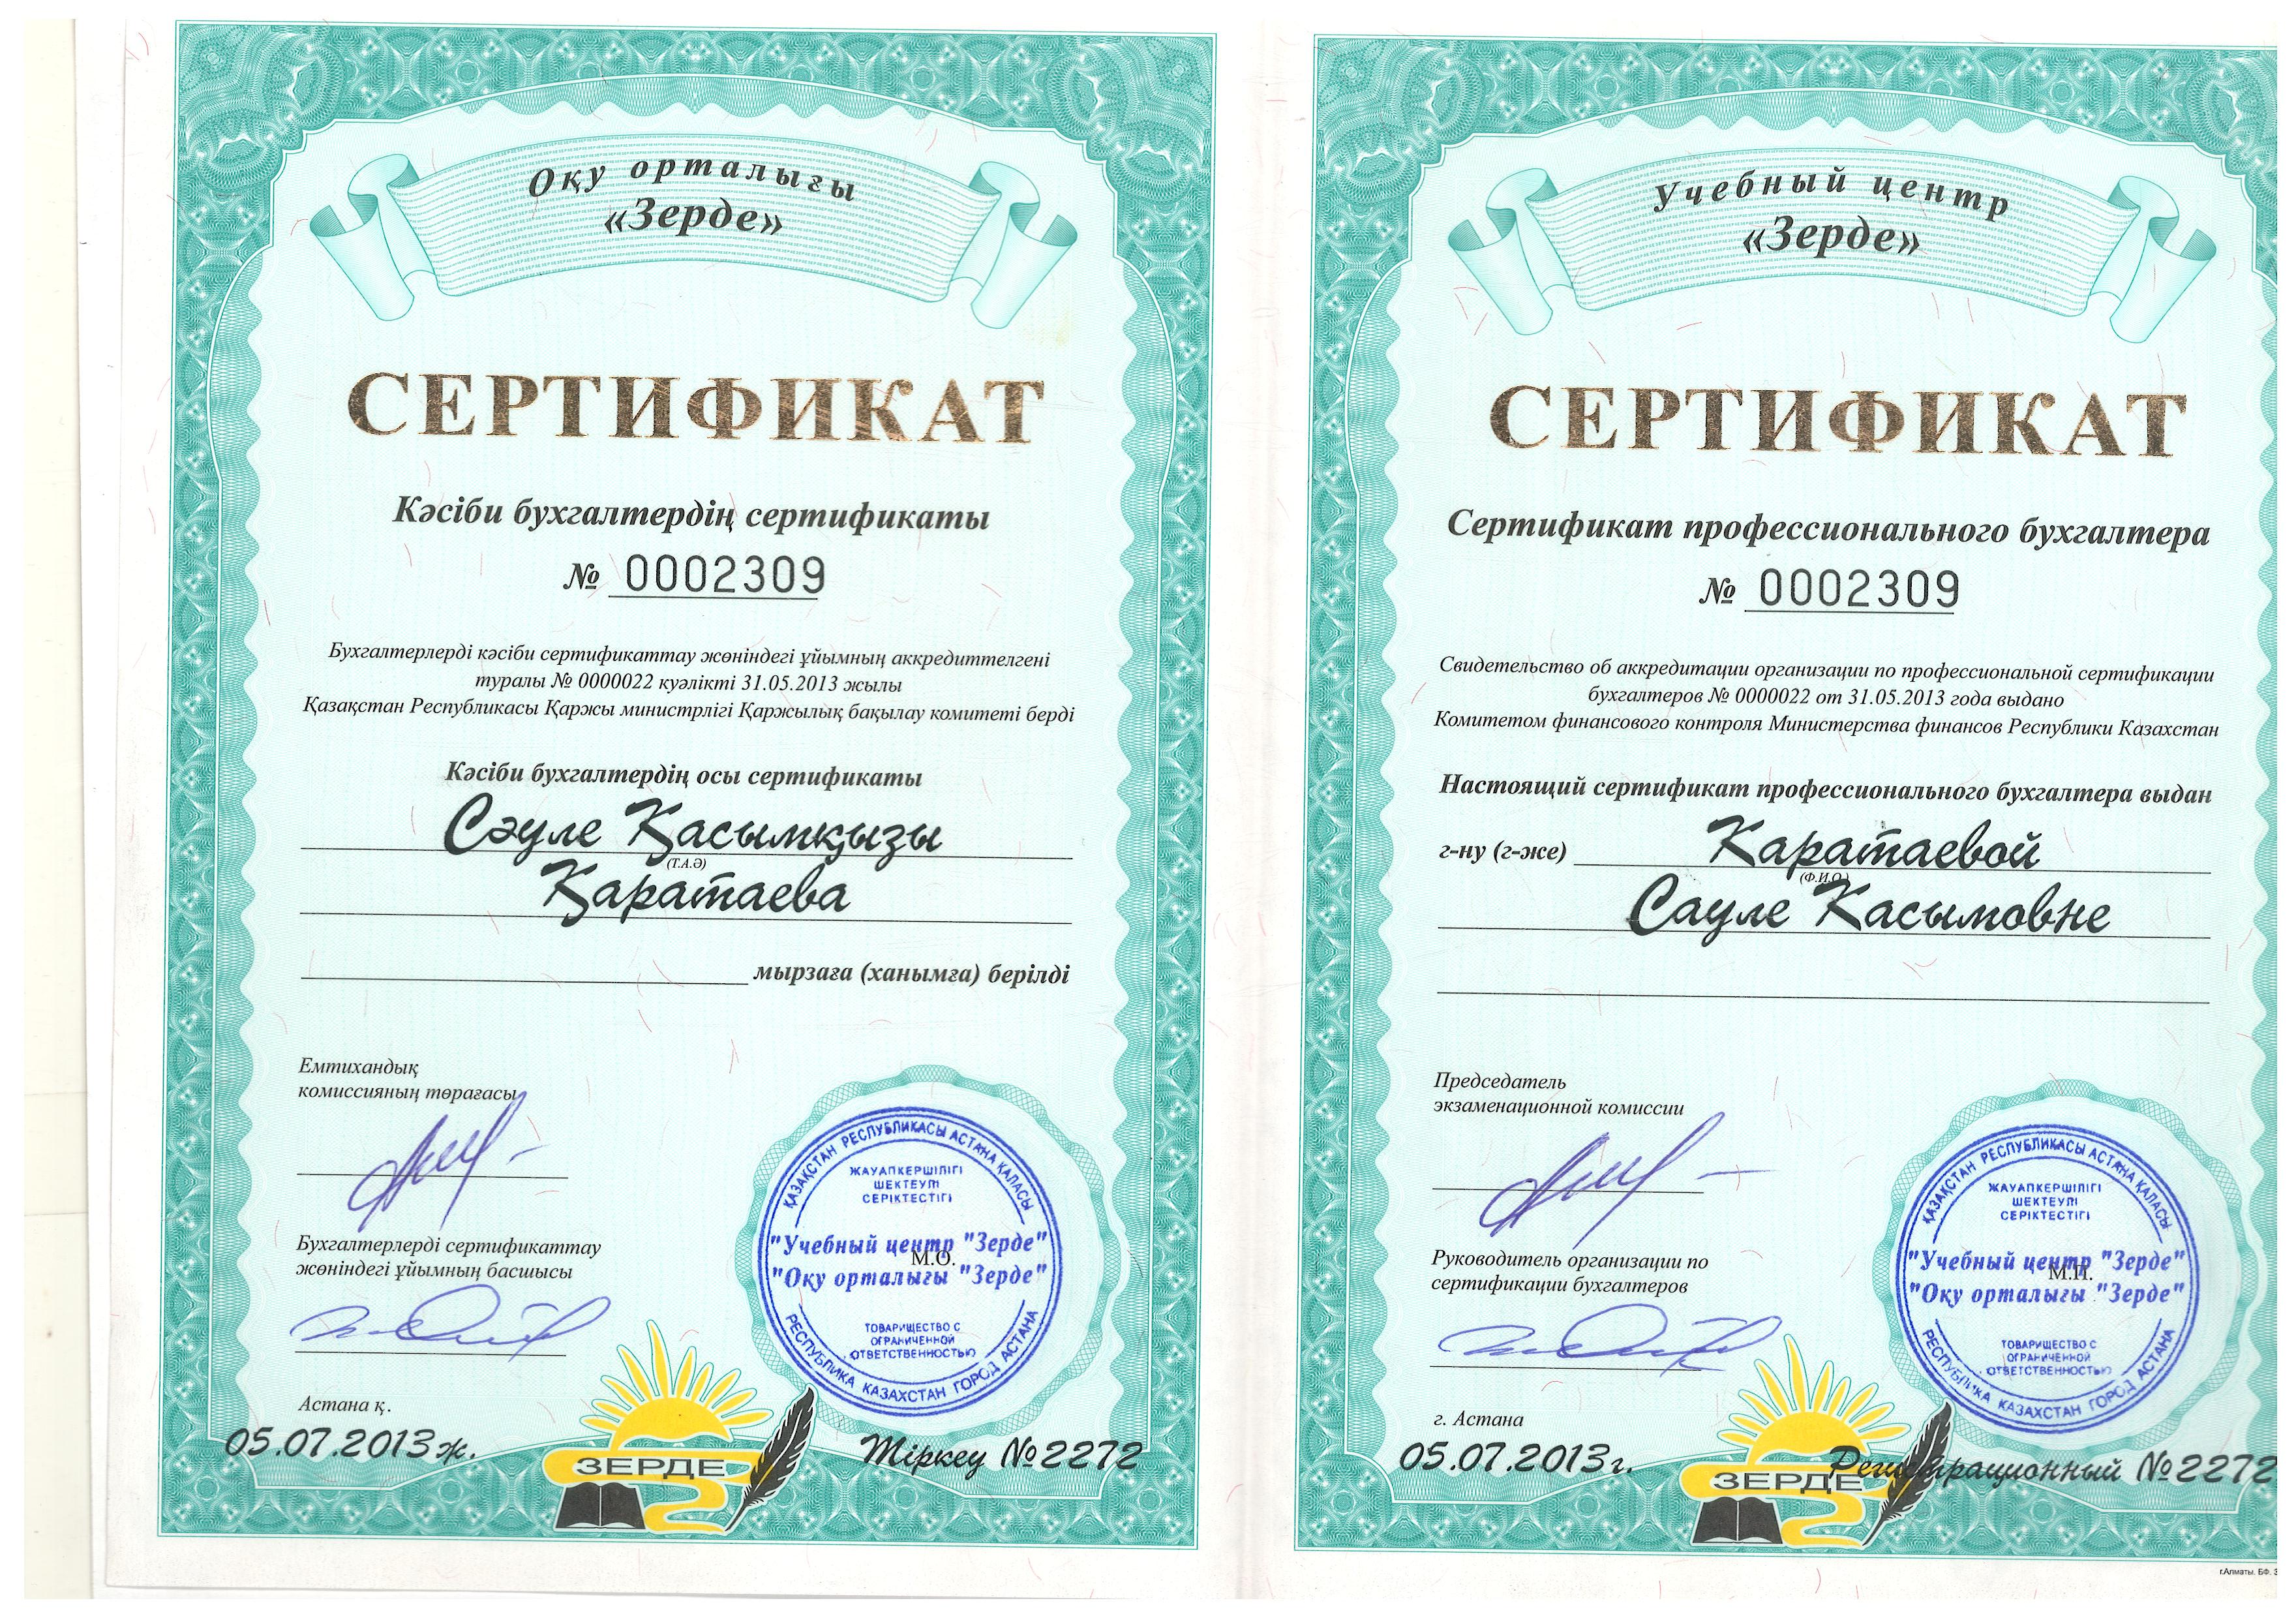 Оқу орталығы
«Зерде»
СЕРТИФИКАТ
Кәсіби бухгалтердің сертификаты
№ 0002309
Бухгалтерлерді кәсіби сертификаттау жөніндегі ұйымның аккредиттелгені
туралы № 0000022 куәлікті 31.05.2013 жылы
Қазақстан Республикасы Қаржы министрлігі Қаржылық бақылау комитеті берді
Кәсіби бухгалтердің осы сертификаты
Сәуле Қасымқызы
(Т.А.Ә)
Қаратаева
мырзаға (ханымға) берілді
Емтихандық
комиссияның төрағасы
Бухгалтерлерді сертификаттау
жөніндегі ұйымның басшысы
Астана қ.
05.07.2013ж.
ЗЕРДЕ
ҚАЗАҚСТАН РЕСПУБЛИКАСЫ АСТАНА ҚАЛАСЫ
ЖАУАПКЕРШІЛІГІ
ШЕКТЕУЛІ
СЕРІКТЕСТІГІ
"Учебный центр "Зерде"
М.О.
"Оқу орталығы "Зерде"
ТОВАРИЩЕСТВО С
ОГРАНИЧЕННОЙ
ОТВЕТСТВЕННОСТЬЮ
РЕСПУБЛИКА КАЗАХСТАН ГОРОД АСТАНА
Тіркеу №2272
Учебный центр
«Зерде»
СЕРТИФИКАТ
Сертификат профессионального бухгалтера
№ 0002309
Свидетельство об аккредитации организации по профессиональной сертификации
бухгалтеров № 0000022 от 31.05.2013 года выдано
Комитетом финансового контроля Министерства финансов Республики Казахстан
Настоящий сертификат профессионального бухгалтера выдан
г-ну (г-же) Каратаевой
(Ф.И.О)
Сауле Касымовне
Председатель
экзаменационной комиссии
Руководитель организации по
сертификации бухгалтеров
г. Астана
05.07.2013г.
ЗЕРДЕ
ҚАЗАҚСТАН РЕСПУБЛИКАСЫ АСТАНА ҚАЛАСЫ
ЖАУАПКЕРШІЛІГІ
ШЕКТЕУЛІ
СЕРІКТЕСТІГІ
"Учебный центр "Зерде"
М.П.
"Оқу орталығы "Зерде"
ТОВАРИЩЕСТВО С
ОГРАНИЧЕННОЙ
ОТВЕТСТВЕННОСТЬЮ
РЕСПУБЛИКА КАЗАХСТАН ГОРОД АСТАНА
Регистрационный №2272
г.Алматы. БФ.